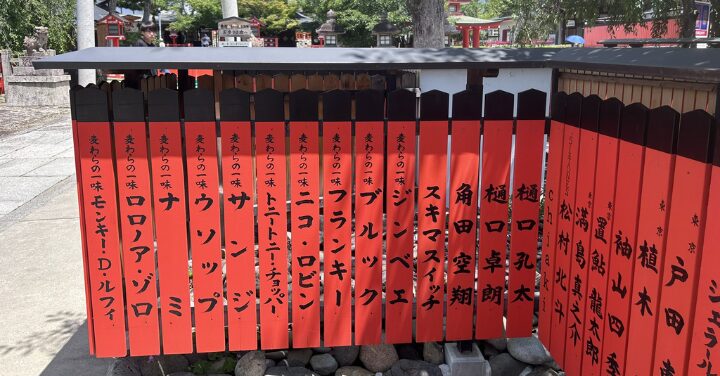 麦わらの一味 モンキー・D・ルフィ
麦わらの一味 ロロノア・ゾロ
麦わらの一味 ナミ
麦わらの一味 ウソップ
麦わらの一味 サンジ
麦わらの一味 トニートニー・チョッパー
麦わらの一味 ニコ・ロビン
麦わらの一味 フランキー
麦わらの一味 ブルック
麦わらの一味 ジンベエ
スキマスイッチ
角田空翔
樋口卓朗
樋口孔太
chiak
松村北斗
満島真之介
置鮎龍太郎
袖山四
東京 植木
東京 戸田
シエラ